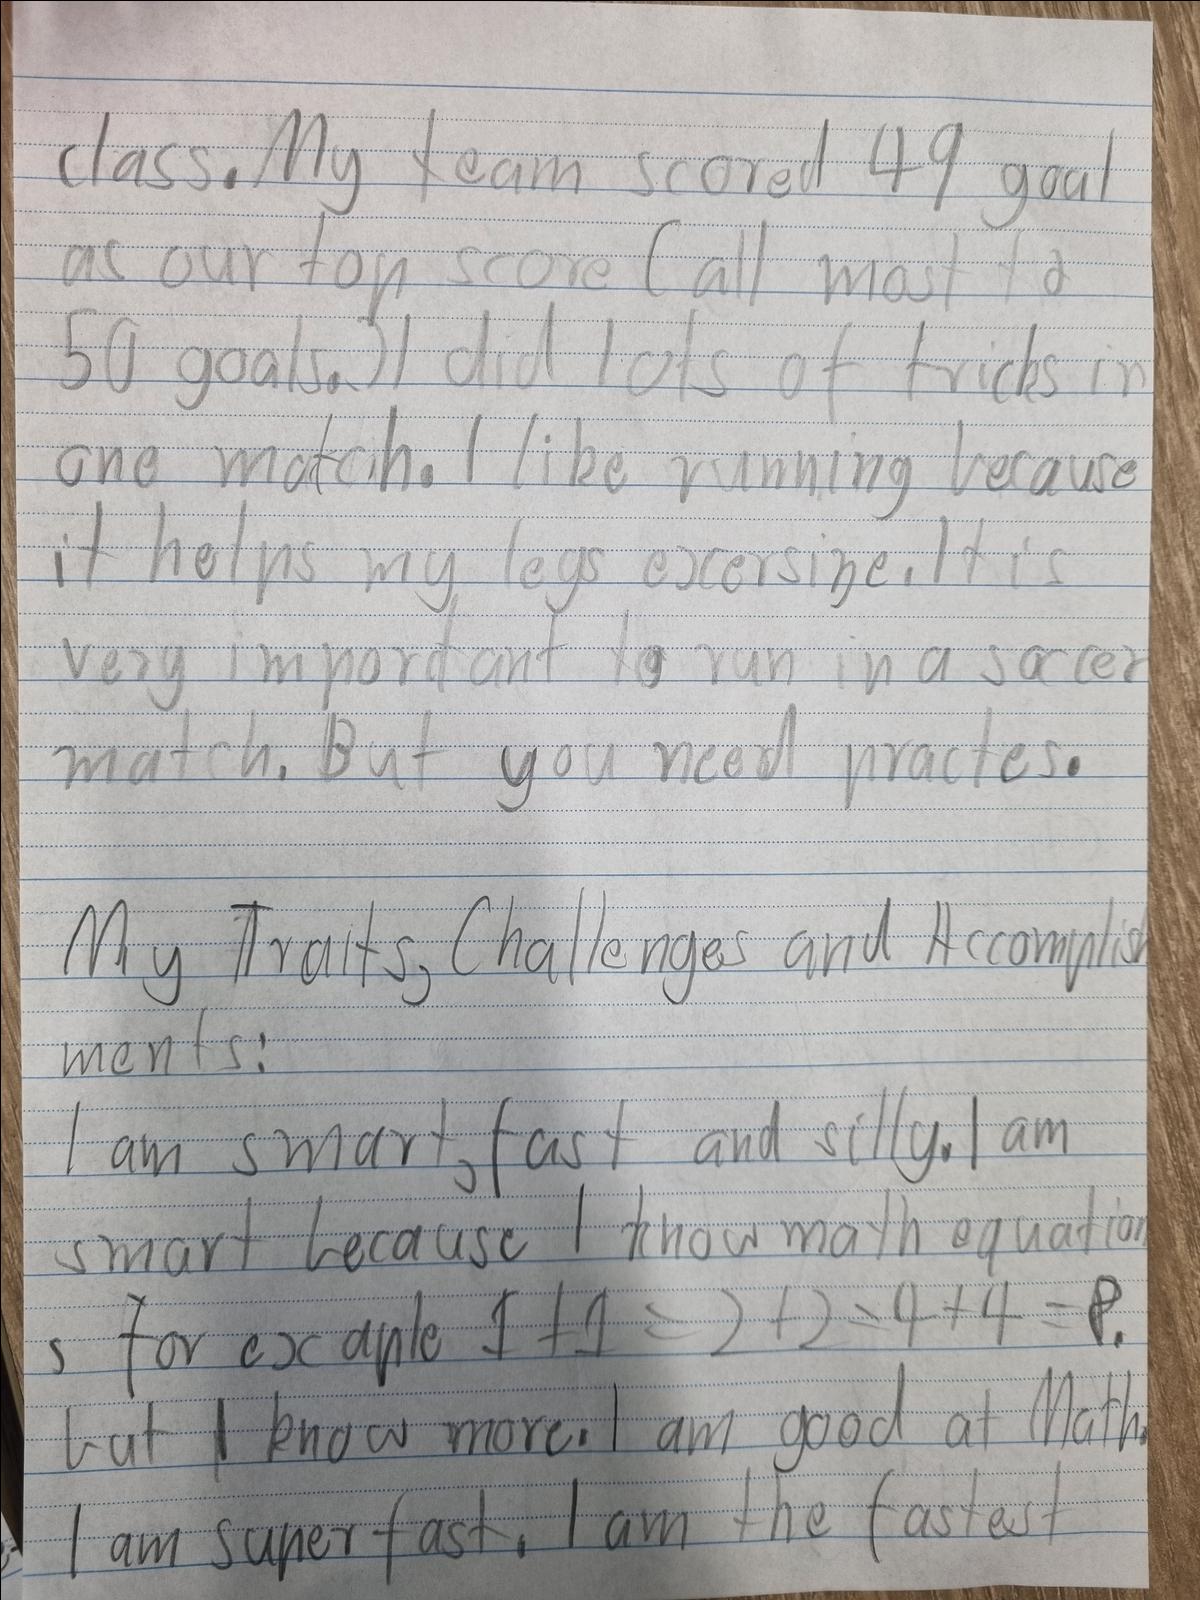 class. My team scored 49 goal
as our top score (all most to
50 goals.) I did lots of tricks in
one match. I like running because
it helps my legs excersize. It is
very important to run in a soccer
match. But you need practes.
My Traits, Challenges and Accomplish
ments:
I am smart, fast and silly. I am
smart because I know math equation
s for example 1+1=2+2=4+4=8.
but I know more. I am good at Math.
I am super fast. I am the fastest